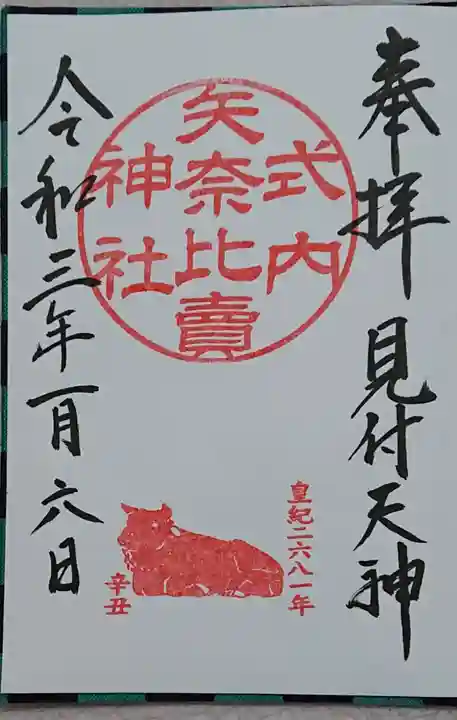 奉拝 見付天神
式内
矢奈比賣
神社
皇紀二六八一年
辛丑
令和三年一月六日